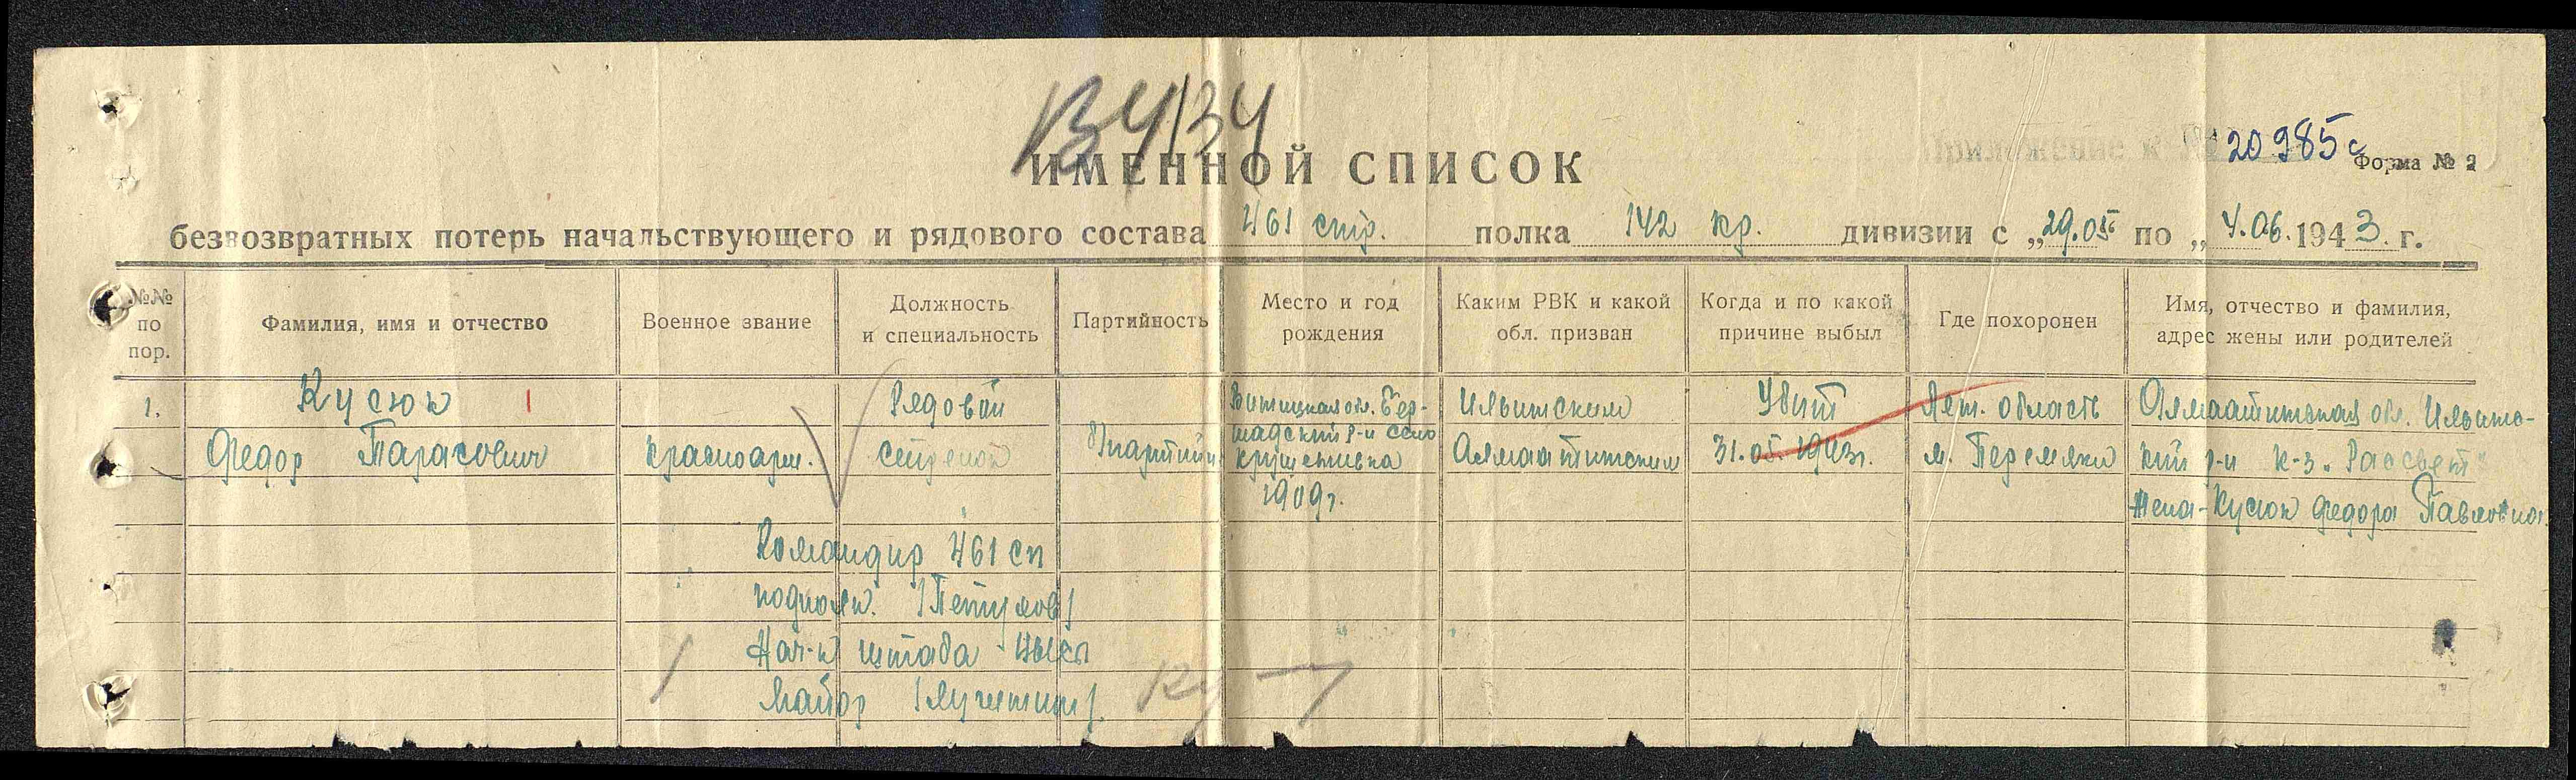 В4/34
Приложение к № 20985с
Форма № 2
ИМЕННОЙ СПИСОК
безвозвратных потерь начальствующего и рядового состава 461 стр. полка 142 кр. дивизии с „29.05 по „4.06.1943. г.
№№ по пор.
Фамилия, имя и отчество
Военное звание
Должность и специальность
Партийность
Место и год рождения
Каким РВК и какой обл. призван
Когда и по какой причине выбыл
Где похоронен
Имя, отчество и фамилия, адрес жены или родителей
1.
Кусюк
Федор Тарасович
красноарм.
Рядовой
стрелок
Винницкая обл. Бер-
шадский р-н село
1909г.
Илийским
Алмаатинским
Убит
31.05.1943г.
Лен. область
м. Перемяки
Алмаатинская обл. Илийс-
кий р-н к-з. "Рассвет"
Жена - Кусюк Федора Павловна.
Командир 461 сп
подполк.
Нач-к штаба 461сп
майор